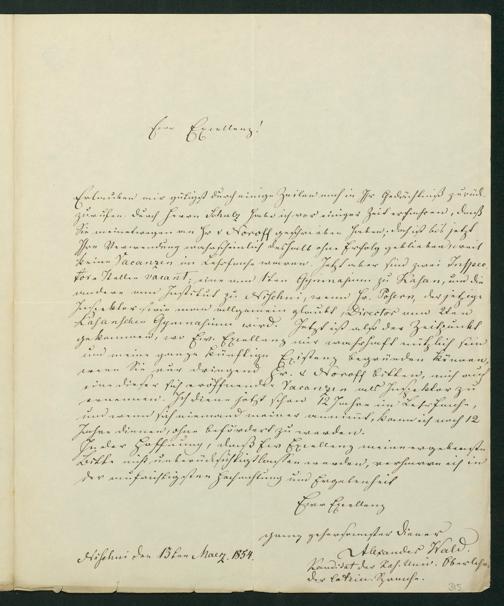 Eure Excellenz!
Erlauben mir gütigst durch einige Zeilen mich in Ihr Gedächtniß zurück
zurufen durch Herrn Schulz habe ich vor einiger Zeit erfahren, daß
Sie meinetwegen an Hr. v Noroff geschrieben haben; doch ist bis jetzt
Ihre Verwendung wahrscheinlich deshalb ohne Erfolg geblieben, weil
keine Vacanzen im Lehrfache waren. Jetzt aber sind zwei Inspec
tors Stellen vacant, eine am 1ten Gymnasium zu Kasan, und die
andere am Institut zu Nishni, wenn Hr. der jetzige
Inspektor, wie man allgemein glaubt, Director am 2ten
Kasanschen Gymnasium wird. Jetzt ist also der Zeitpunkt
gekommen, wo Eure Excellenz mir wahrhaft nützlich sein
und meine ganze künftige Existenz begründen können,
wenn Sie nur dringend Hr. v Noroff bitten, mich auf
eine dieser sich eröffnenden Vacanzen als Inspektor zu
ernennen. Ich diene jetzt schon 12 Jahre im Lehrfache,
und wenn sich niemand meiner annimmt, kann ich noch 12
Jahre dienen, ohne befördert zu werden.
In der Hoffnung, daß Eure Excellenz meine ergebenste
Bitte nicht unberücksichtigt lassen werden, verharre ich in
der aufrichtigsten Hochachtung und Ergebenheit
Eurer Excellenz
ganz gehorsamster Diener
Alexander Wald.
Kandidat der Oberlehrer
der Latein. Sprache.
Nishni den 13ten Maerz. 1854.